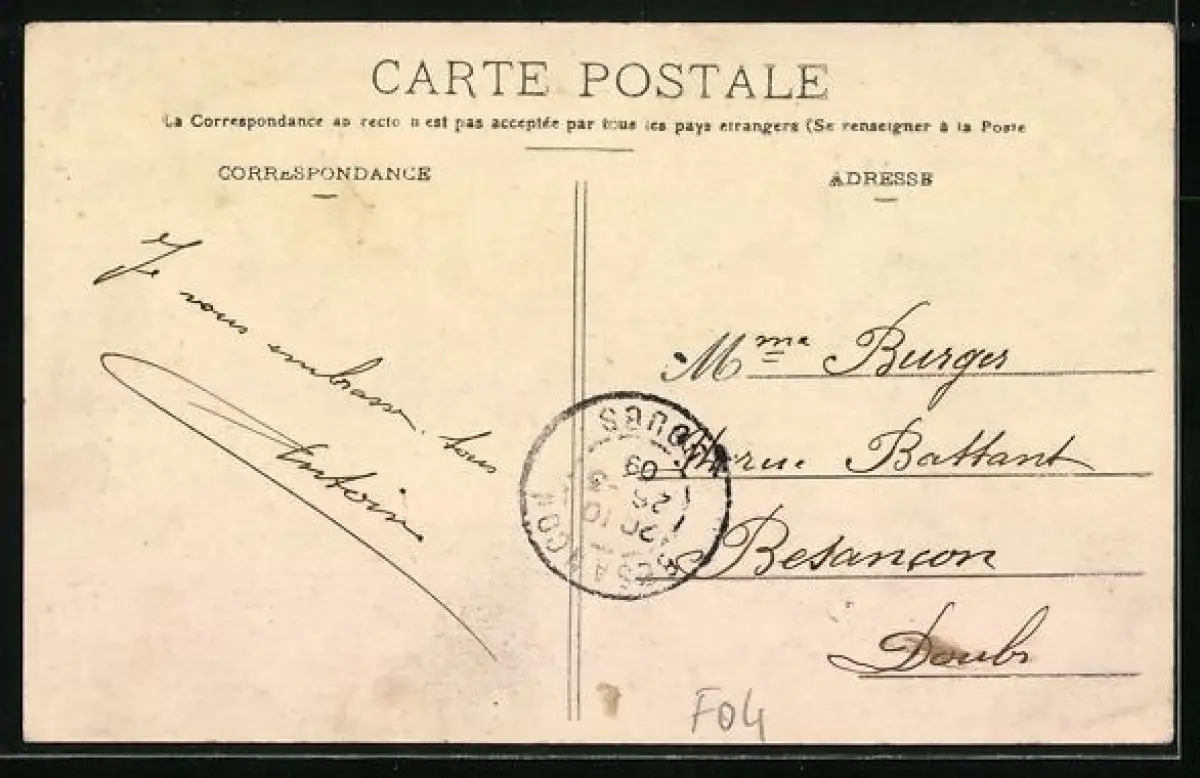 CARTE POSTALE
La Correspondance au recto n'est pas acceptée par tous les pays etrangers (Se renseigner à la Poste
CORRESPONDANCE
ADRESSE
Je vous embrasse tous
Antoine
Mme Burger
rue Battant
Besançon
Doubs
BESANCON DOUBS
09
F04